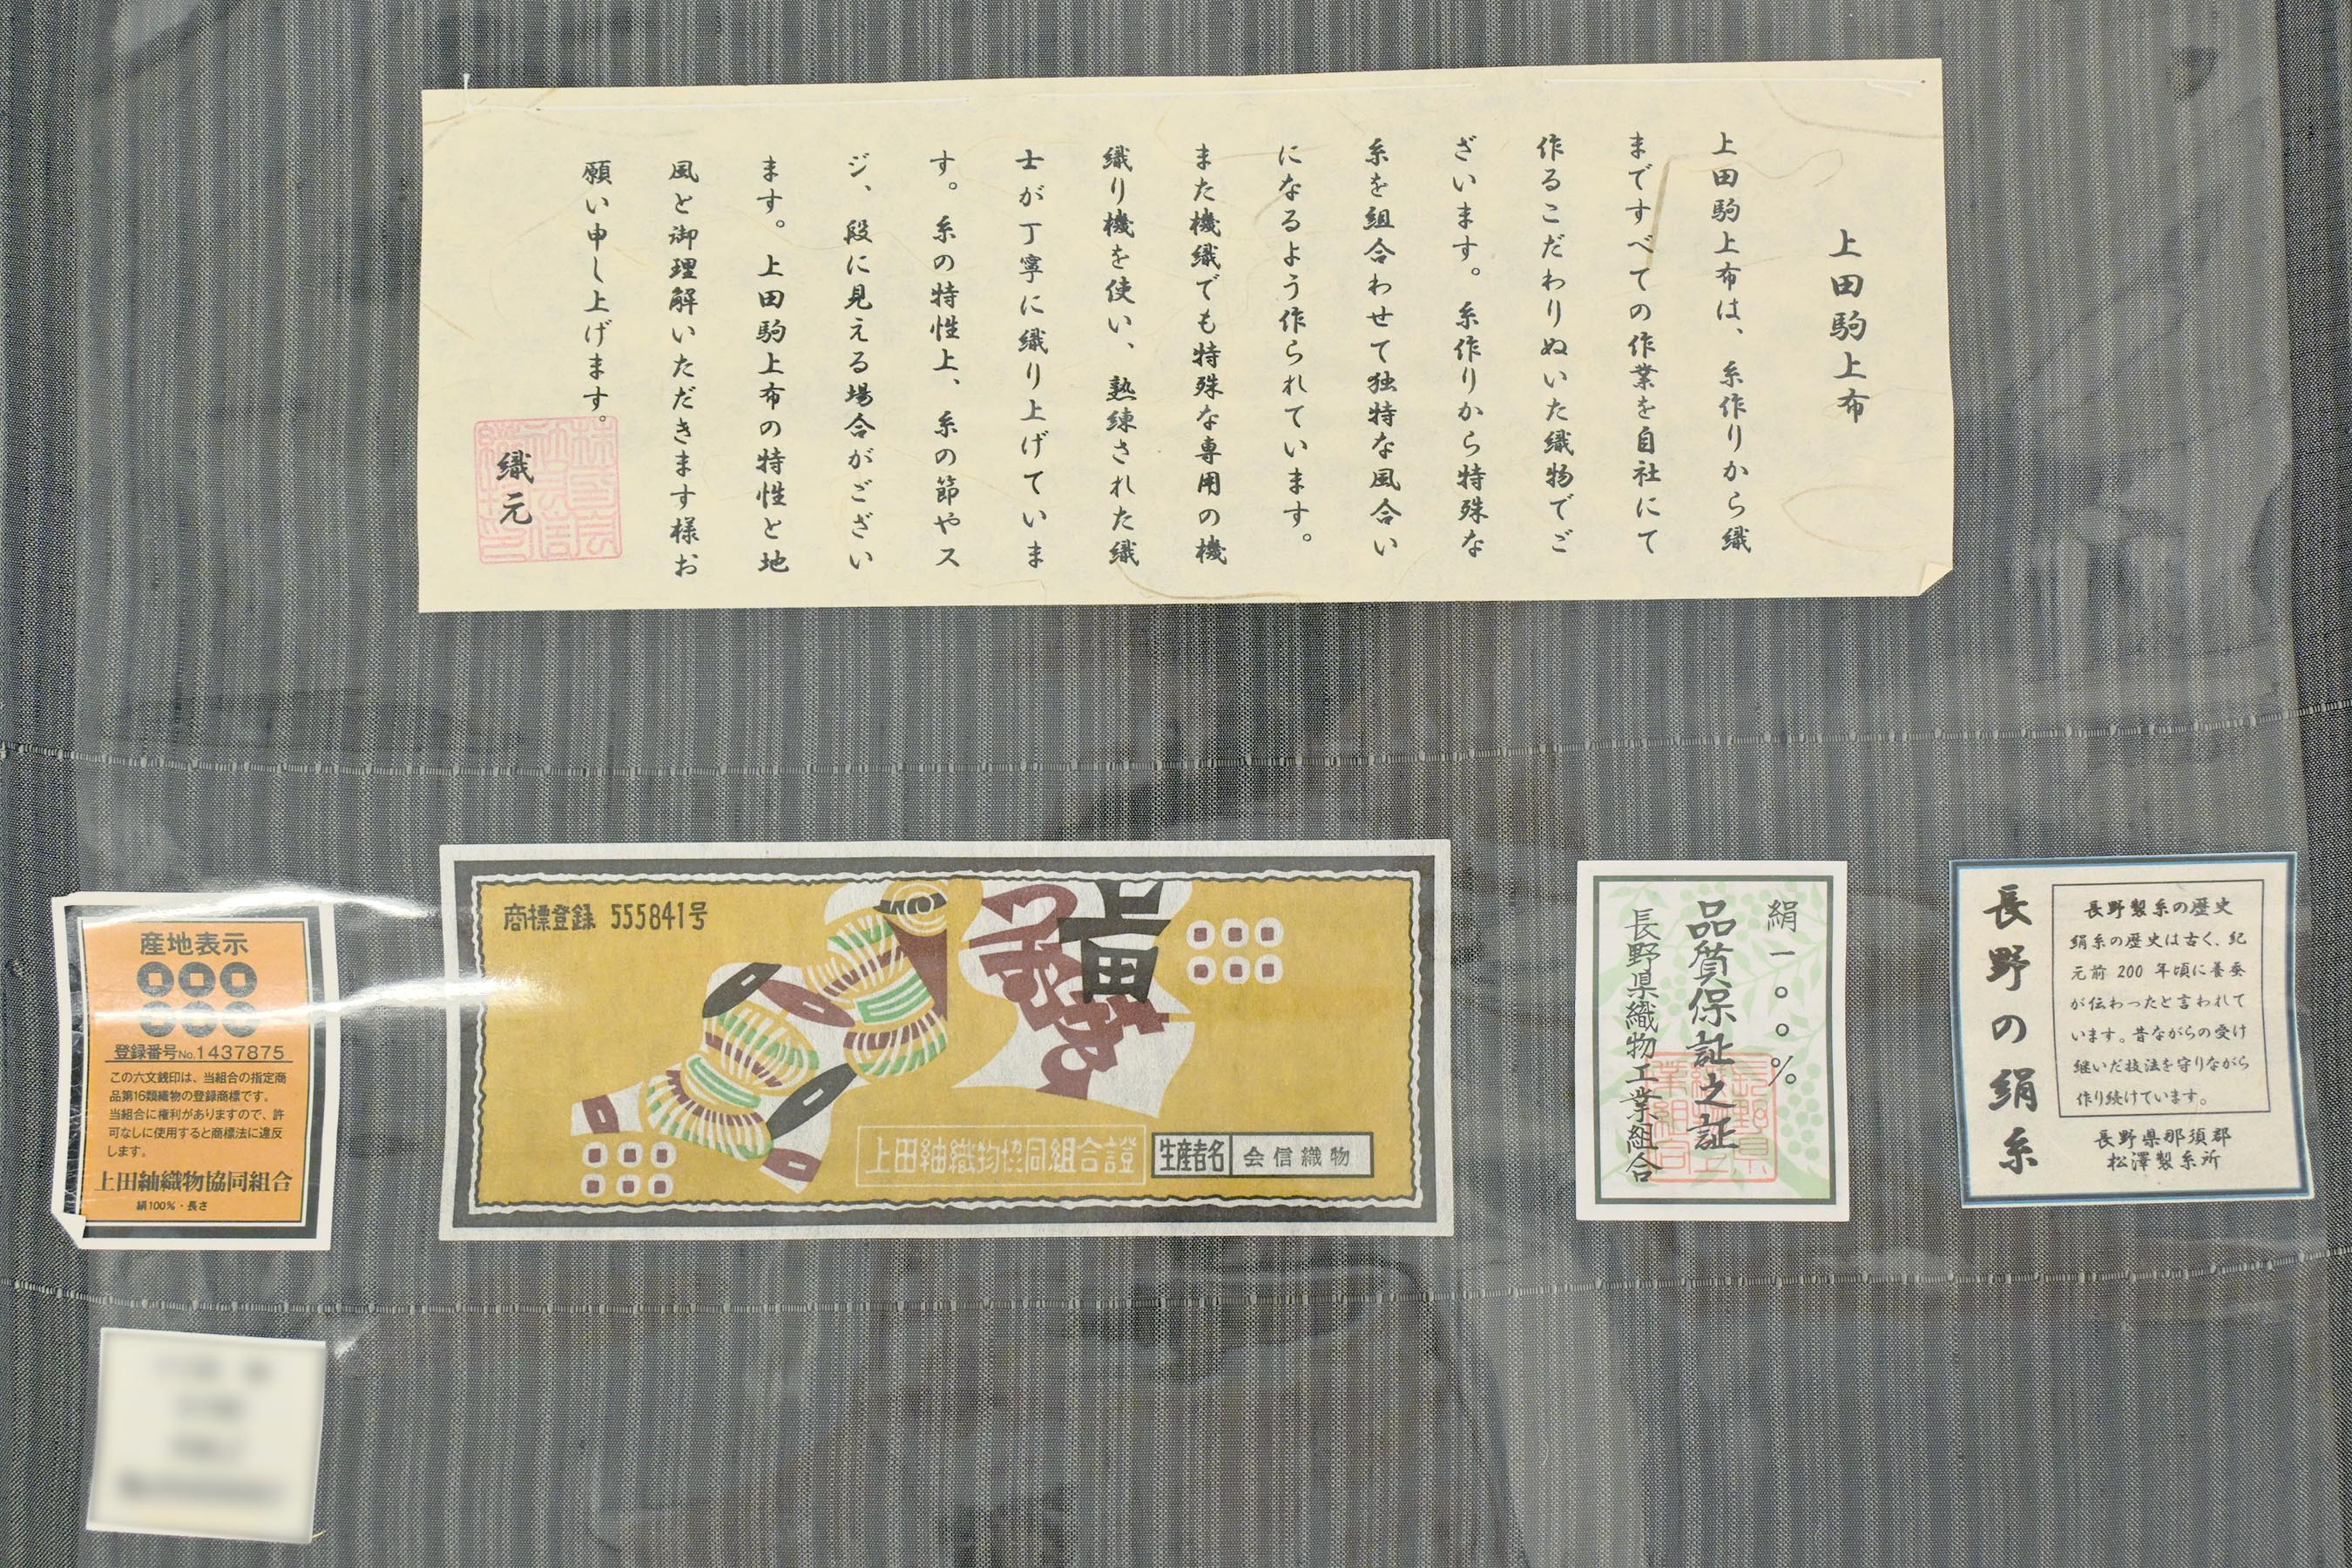 上田駒上布
上田駒上布は、糸作りから織
まですべての作業を自社にて
作るこだわりぬいた織物でご
ざいます。糸作りから特殊な
糸を組合わせて独特な風合い
になるよう作られています。
また機織でも特殊な専用の機
織り機を使い、熟練された織
士が丁寧に織り上げていま
す。糸の特性上、糸の節やス
ジ、段に見える場合がござい
ます。上田駒上布の特性と地
風と御理解いただきます様お
願い申し上げます。
織元
産地表示
登録番号No.1437875
この六文銭印は、当組合の指定商
品第16類織物の登録商標です。
当組合に権利がありますので、許
可なしに使用すると商標法に違反
します。
上田紬織物協同組合
絹100%・長さ
商標登録 555841号
上田
上田紬織物協同組合證
生産者名 会信織物
絹一〇〇%
品質保証之証
長野県織物工業組合
長野の絹糸
長野製糸の歴史
絹糸の歴史は古く、紀
元前 200 年頃に養蚕
が伝わったと言われて
います。昔ながらの受け
継いだ技法を守りながら
作り続けています。
長野県那須郡
松澤製糸所